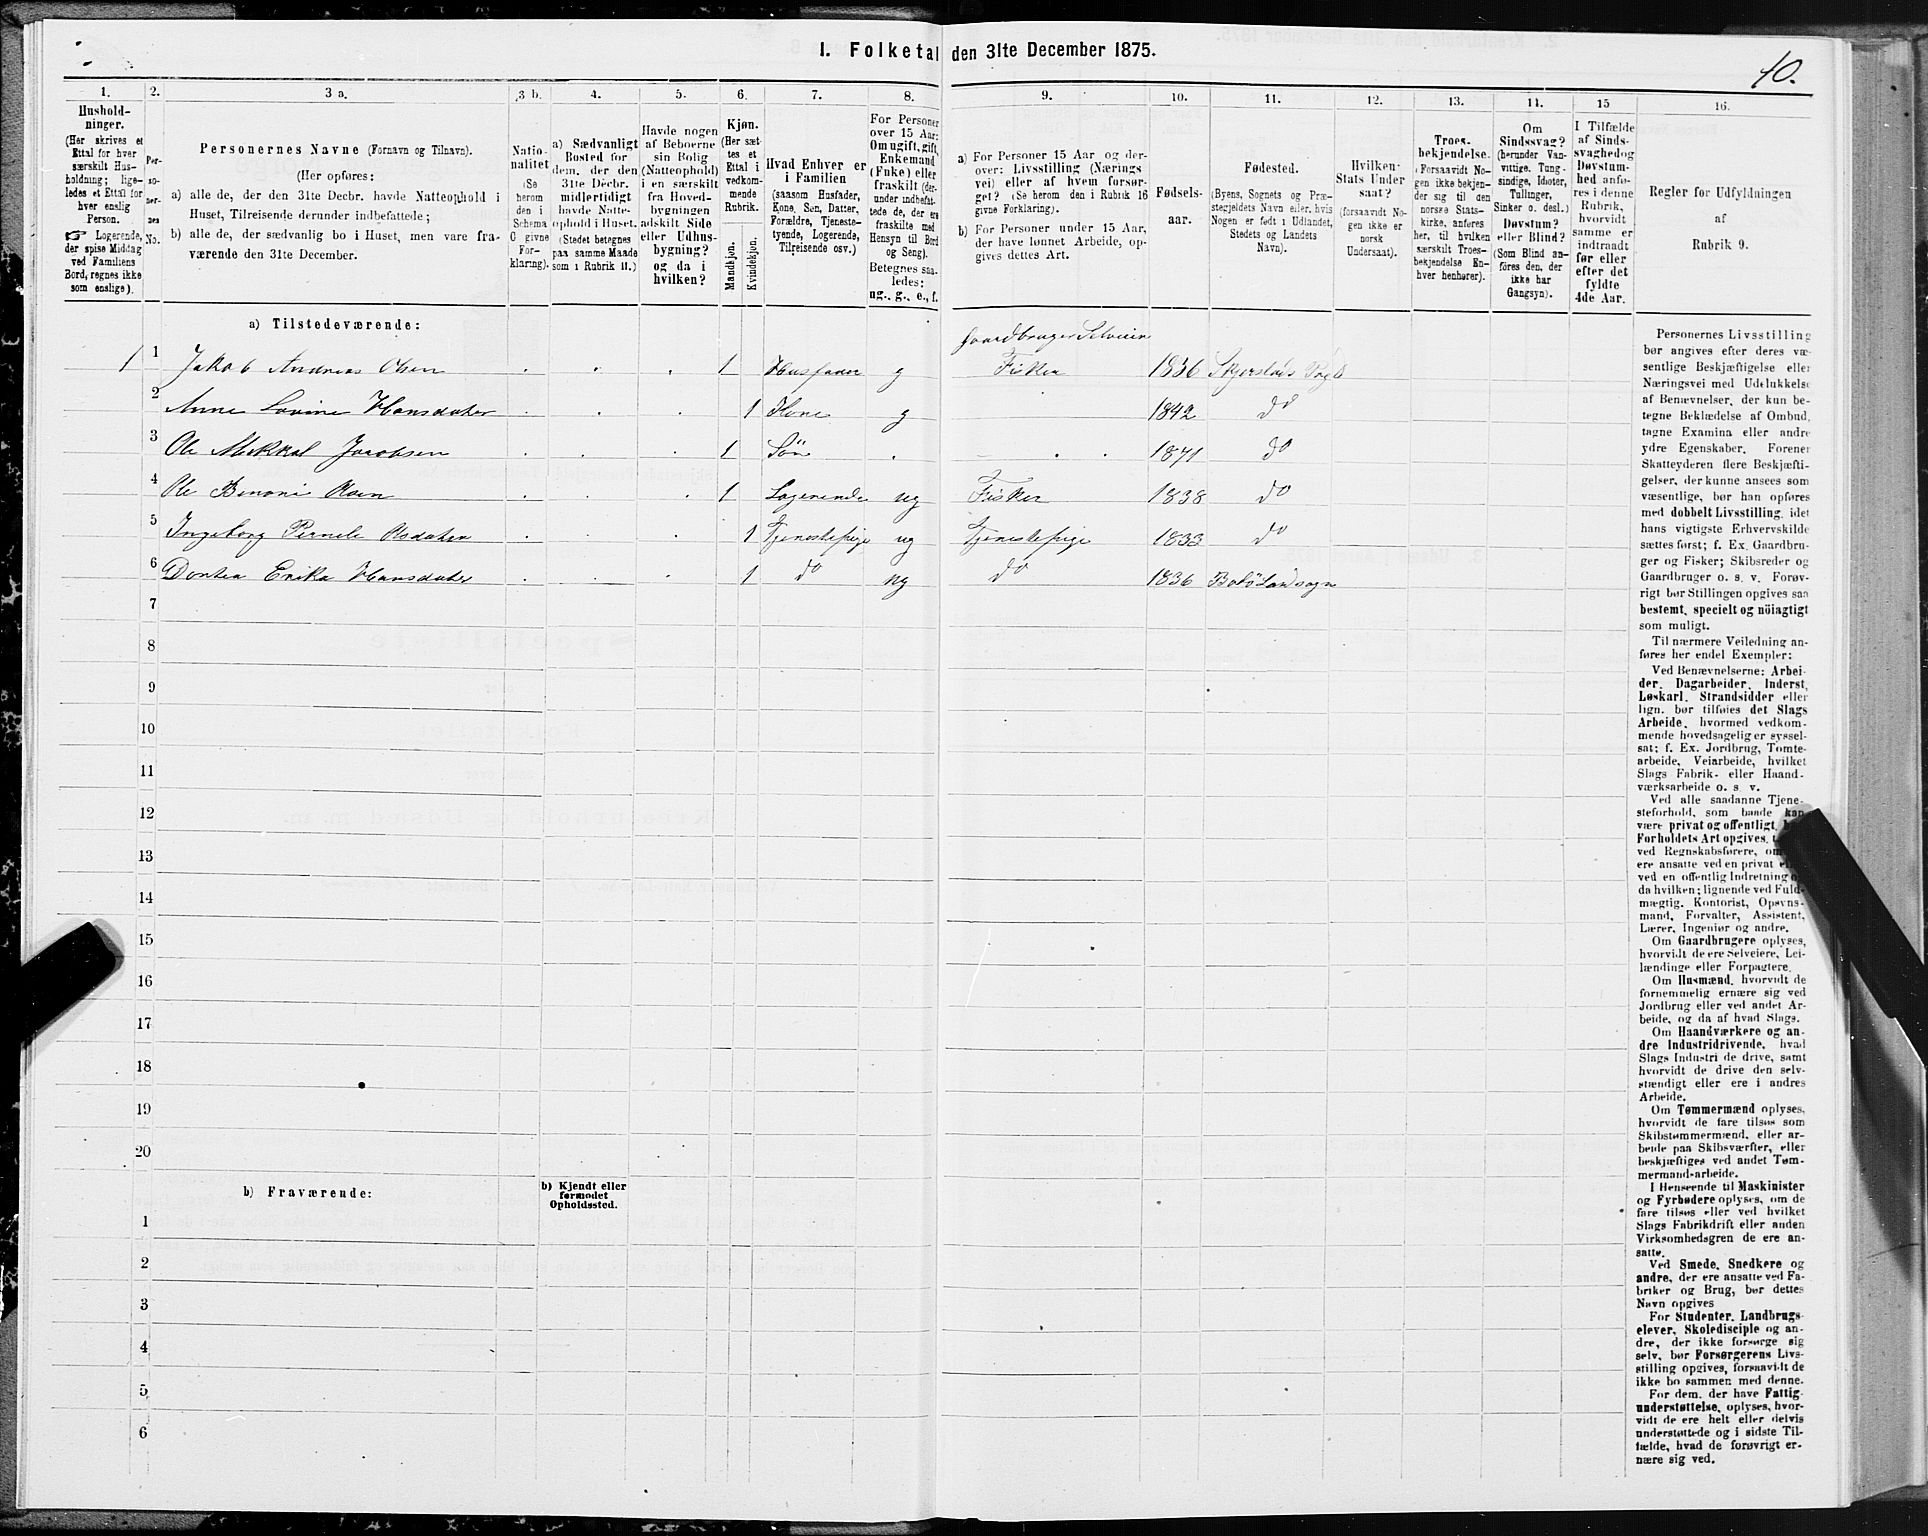 I. Folketal den 31te December 1875.
10.
1.
Hushold-
ninger.
(Her skrives et
Ettal for hver
særskilt Hus-
holdning; lige-
ledes et Ettal for
hver enslig
Person.
☞ Logerende,
der spise Middag
ved Familiens
Bord, regnes ikke
som enslige).
2.
Per-
so-
ner-
nes
No.
3 a.
Personernes Navne (Fornavn og Tilnavn).
(Her opføres:
a) alle de, der den 31te Decbr. havde Natteophold i
Huset, Tilreisende derunder indbefattede;
b) alle de, der sædvanlig bo i Huset, men vare fra-
værende den 31te December.
3 b.
Natio-
nalitet
(Se
herom
den i
Schema
C givne
For-
klaring).
4.
a) Sædvanligt
Bosted for
dem, der den
31te Decbr.
midlertidigt
havde Natte-
ophold i Huset.
(Stedet betegnes
paa samme Maade
som i Rubrik 11.)
5.
Havde nogen
af Beboerne
sin Bolig
(Natteophold)
i en særskilt
fra Hoved-
bygningen
adskilt Side
eller Udhus-
bygning?
og da i
hvilken?
6.
Kjøn.
(Her sæt-
tes et
Ettal i
vedkom-
mende
Rubrik.
Mandkjøn.
Kvindekjøn.
7.
Hvad Enhver er
i Familien
(saasom Husfader,
Kone, Søn, Datter,
Forældre, Tjeneste-
tyende, Logerende,
Tilreisende osv.)
8.
For Personer
over 15 Aar:
Om ugift, gift,
Enkemand
(Enke) eller
fraskilt (der-
under indbefat-
tede de, der ere
fraskilte med
Hensyn til Bord
og Seng).
Betegnes saa-
ledes:
ug., g., e., f.
9.
a) For Personer 15 Aar og der-
over: Livsstilling (Nærings-
vei) eller af hvem forsør-
get? (Se herom den i Rubrik 16
givne Forklaring).
b) For Personer under 15 Aar,
der have lønnet Arbeide, op-
gives dettes Art.
10.
Fødsels-
aar.
11.
Fødested.
(Byens, Sognets og Præ-
stegjeldets Navn eller, hvis
Nogen er født i Udlandet,
Stedets og Landets
Navn).
12.
Hvilken
Stats Under-
saat?
(forsaavidt No-
gen ikke er
norsk
Undersaat).
13.
Troes-
bekjendelse.
(Forsaavidt No-
gen ikke bekjen-
der sig til den
norske Stats-
kirke, anføres
her, til hvilken
særskilt Troes-
bekjendelse En-
hver henhører).
14.
Om
Sindssvag?
(herunder Van-
vittige, Tung-
sindige, Idioter,
Tullinger,
Sinker o. desl.)
Døvstum?
eller Blind?
(Som Blind an-
føres den, der
ikke har
Gangsyn).
15
I Tilfælde
af Sinds-
svaghed og
Døvstum-
hed anfø-
res i denne
Rubrik,
hvorvidt
samme er
indtraadt
før eller
efter det
fyldte
4de Aar.
16.
Regler for Udfyldningen
af
Rubrik 9.
a) Tilstedeværende:
Gaardbruger Selveier
1 1 Jakob Andreas Olsen 1 Husfader g Fisker 1836
2 Anne Lovine Hansdater 1 Kone g 1842 do
3 Ole Mikkal Jacobsen 1 Søn 1871 do
4 Ole Benoni Olsen 1 Logerende ug Fisker 1838 do
5 Ingeborg Pernele Olsdater 1 Tjenestepige ug Tjenestepige 1833 do
6 Dortea Erika Hansdater 1 do ug do 1836 Bodö Landsogn
7
8
9
10
11
12
13
14
15
16
17
18
19
20
b) Fraværende:
b) Kjendt eller
formodet
Opholdssted.
1
2
3
4
5
6
Personernes Livsstilling
bør angives efter deres væ-
sentlige Beskjæftigelse eller
Næringsvei med Udelukkelse
af Benævnelser, der kun be-
tegne Beklædelse af Ombud,
tagne Examina eller andre
ydre Egenskaber. Forener
Skatteyderen flere Beskjæfti-
gelser, der kunne ansees som
væsentlige, bør han opføres
med dobbelt Livsstilling, idet
hans vigtigste Erhvervskilde
sættes først; f. Ex. Gaardbru-
ger og Fisker; Skibsreder og
Gaardbruger o. s. v. Forøv-
rigt bør Stillingen opgives saa
bestemt, specielt og nöiagtigt
som muligt.
Til nærmere Veiledning an-
føres her endel Exempler:
Ved Benævnelserne: Arbei-
der, Dagarbeider, Inderst,
Løskarl, Strandsidder eller
lign. bør tilføies det Slags
Arbeide, hvormed vedkom-
mende hovedsagelig er syssel-
sat; f. Ex. Jordbrug, Tomte-
arbeide, Veiarbeide, hvilket
Slags Fabrik- eller Haand-
værksarbeide o. s. v.
Ved alle saadanne Tjene-
steforhold, som baade kan
være privat og offentligt,
Forholdets Art opgives,
ved Regnskabsførere, om
ere ansatte ved en privat
ved en offentlig Indretning
da hvilken; lignende ved Fuld-
mægtig, Kontorist, Opsyns-
mand, Forvalter, Assistent,
Lærer, Ingeniør og andre.
Om Gaardbrugere oplyses,
hvorvidt de ere Selveiere, Lei-
lændinge eller Forpagtere.
Om Husmænd, hvorvidt de
fornemmelig ernære sig ved
Jordbrug eller ved andet Ar-
beide, og da af hvad Slags.
Om Haandværkere og an-
dre Industridrivende, hvad
Slags Industri de drive, samt
hvorvidt de drive den selv-
stændigt eller ere i andres
Arbeide.
Om Tømmermænd oplyses,
hvorvidt de fare tilsøs som
Skibstømmermænd, eller ar-
beide paa Skibsværfter, eller
beskjæftiges ved andet Tøm-
mermand-arbeide.
I Henseende til Maskinister
og Fyrbødere oplyses, om de
fare tilsøs eller ved hvilket
Slags Fabrikdrift eller anden
Virksomhedsgren de ere an-
satte.
Ved Smede, Snedkere og
andre, der ere ansatte ved Fa-
briker og Brug, bør dettes
Navn opgives
For Studenter, Landbrugs-
elever, Skoledisciple og an-
dre, der ikke forsørge sig
selv, bør Forsørgerens Livs-
stilling opgives, forsaavidt de
ikke bo sammen med denne.
For dem, der have Fattig-
understøttelse, oplyses, hvor-
vidt de ere helt eller delvis
understøttede og i sidste Til-
fælde, hvad de forøvrigt er-
nære sig ved.